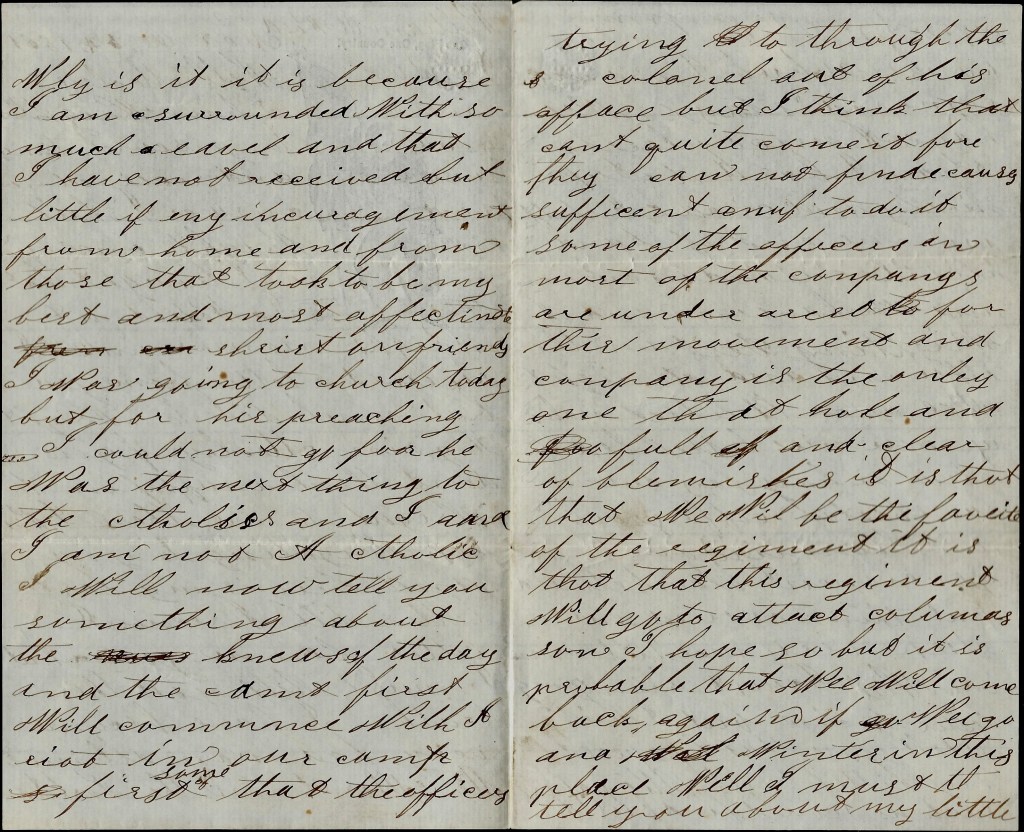 Why is it it is because
I am surrounded With so
much eavel and that
I have not received but
little if eny incuragement
from home and from
those that took to be my
best and most affectinot
shrist an friends
I Was going to church today
but for his preaching
I could not go foor he
Was the next thing to
the ctholiscs and I
I am not A ctholic
I Will now tell you
something about
the knews of the day
and the camt first
Will commence With A
riot in our camp
some
first that the officers
trying to through the
colonel aut of his
afface but I think that
cant quite come it fore
they can not find causg
sufficent anuf to do it
some of the officers in
most of the conpanys
are under arest to for
this movement and
conpany is the onley
one that hole and
full and clear
of blemishes it is thot
that We Wil be the faveite
of the regiment it is
thot that this regiment
Will go to attact columas
son I hope so but it is
probable that Wee Will come
back again if Wee go
and Winter in this
place Well I must
tell you about my little